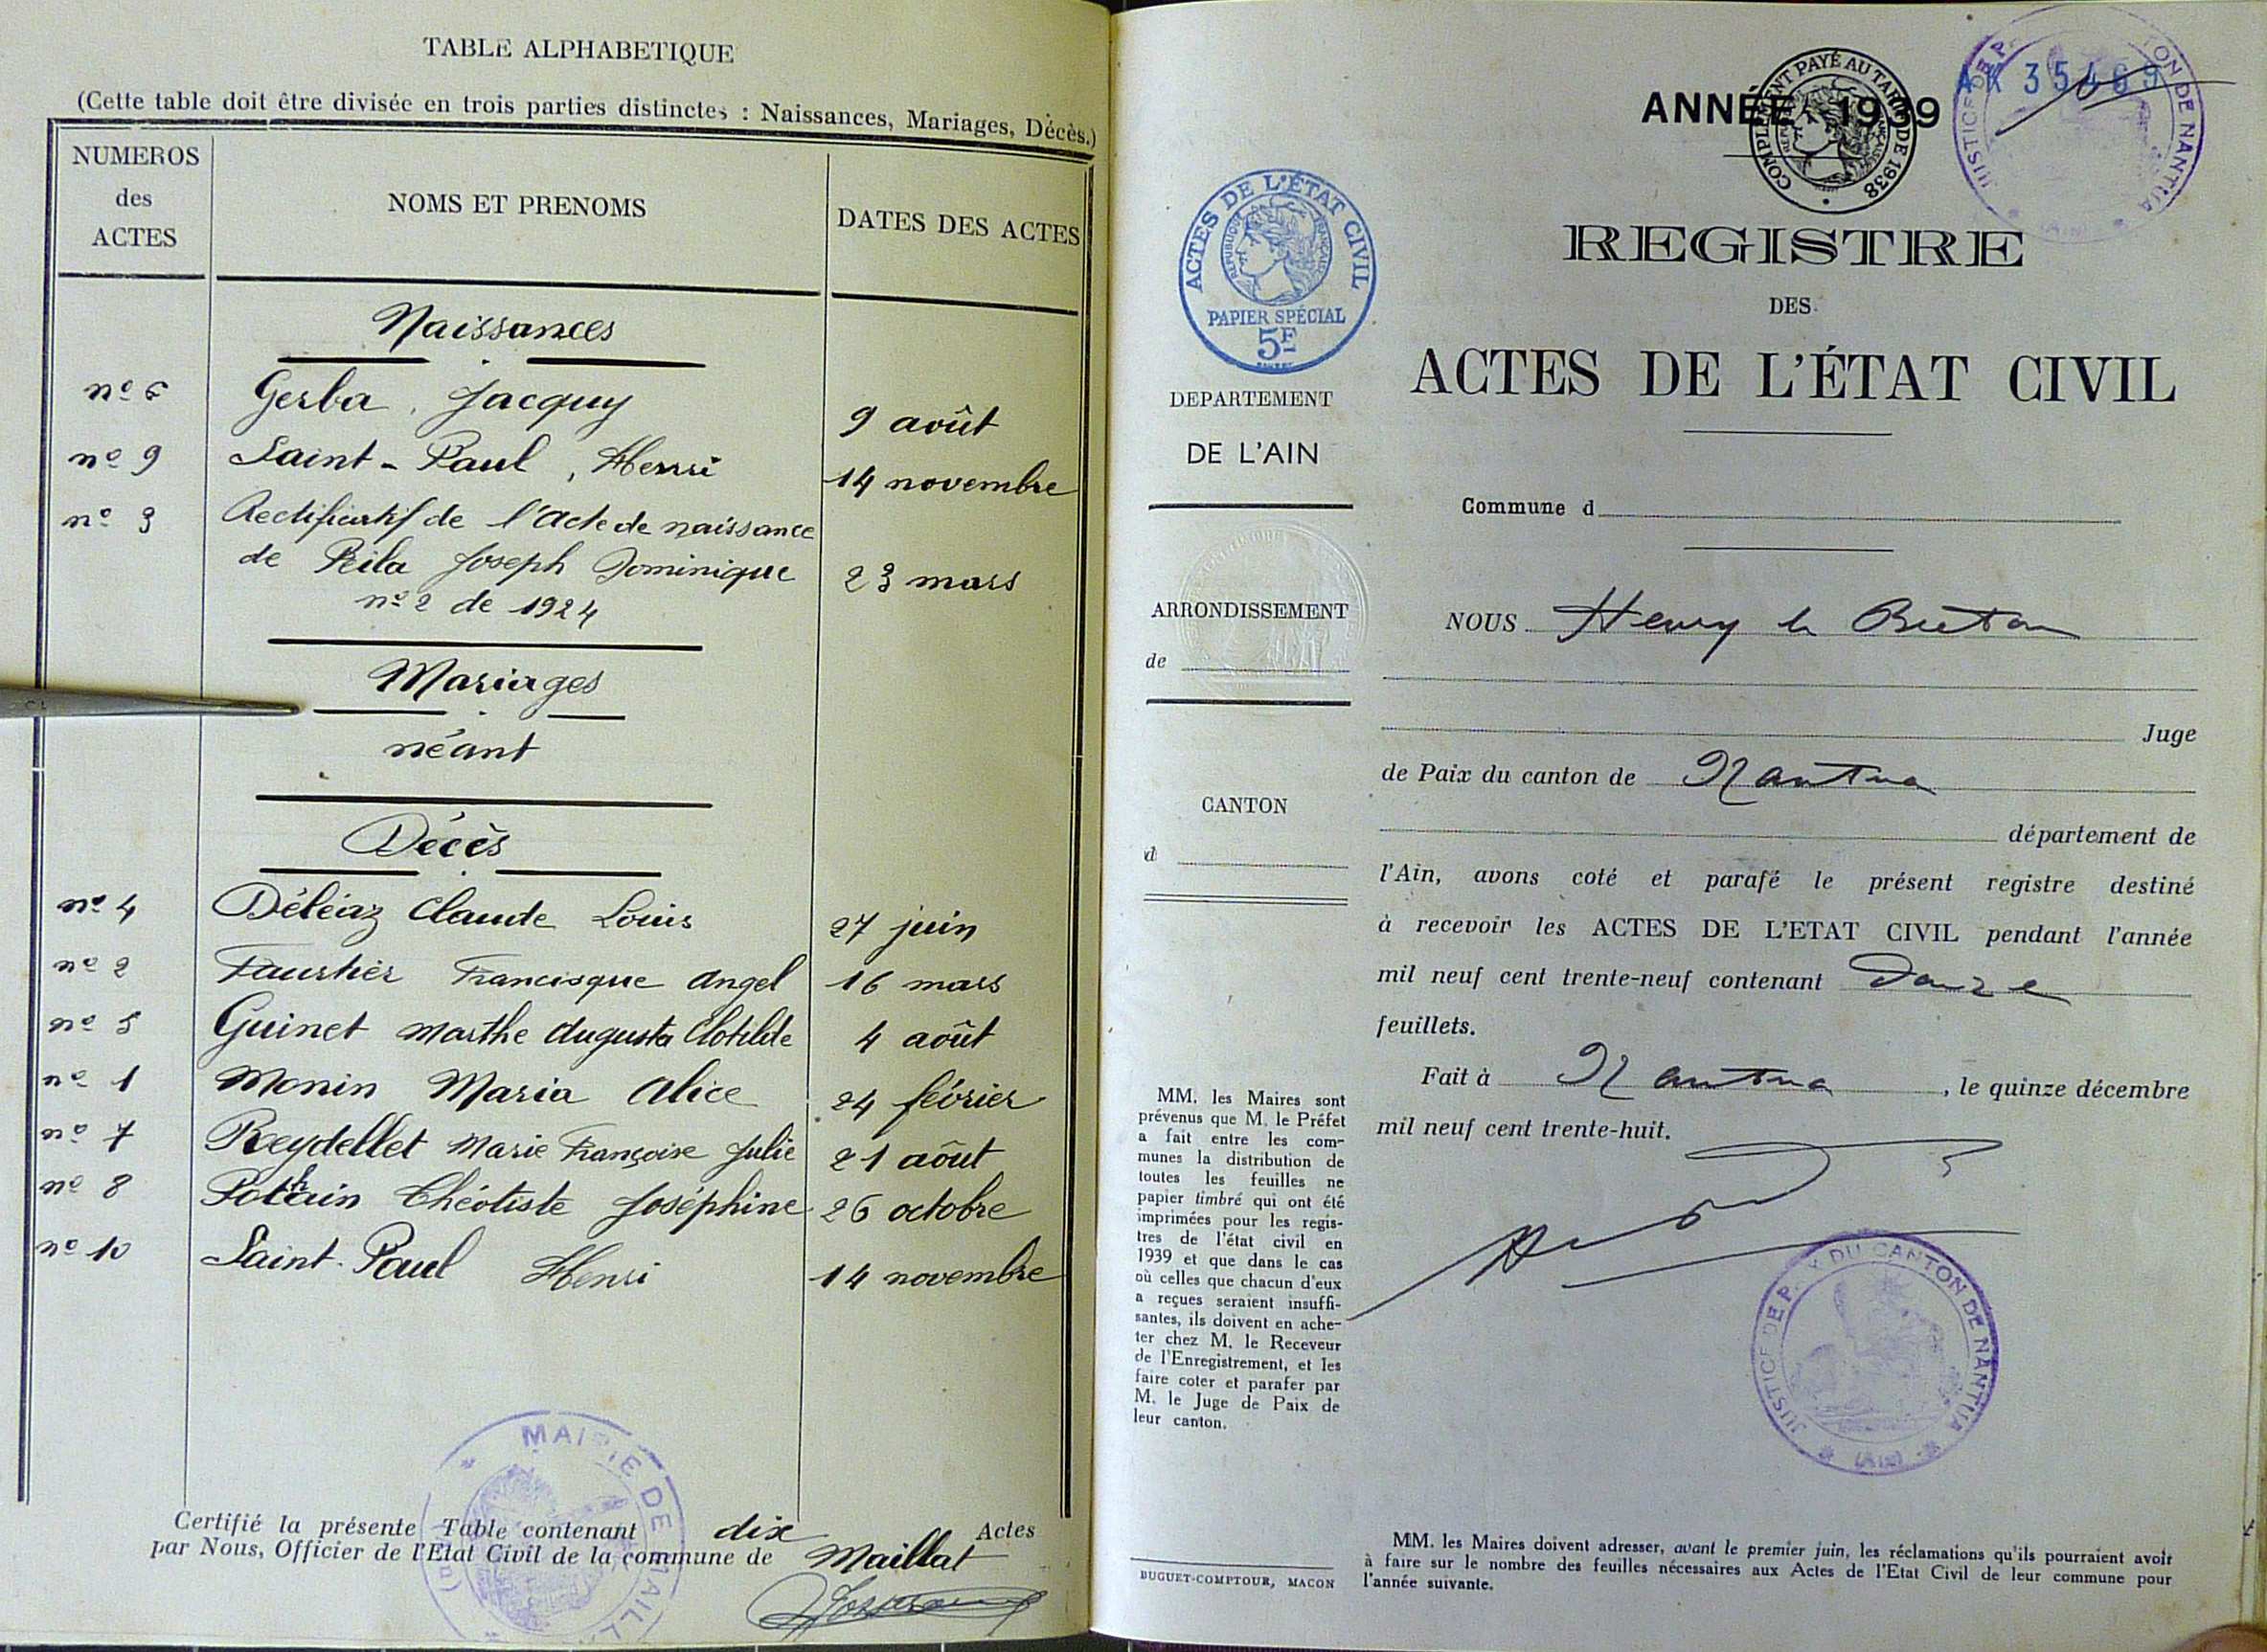 TABLE ALPHABETIQUE
(Cette table doit être divisée en trois parties distinctes : Naissances, Mariages, Décès.)
NUMEROS des ACTES
NOMS ET PRENOMS
DATES DES ACTES
Naissances
nº 6 Gerba, Jacquy 9 août
nº 9 Saint-Paul, Henri 14 novembre
nº 3 Rectificatif de l'acte de naissance
de Peila Joseph Dominique 23 mars
nº 2 de 1924
Mariages
néant
Décès
nº 4 Déléaz Claude Louis 27 juin
nº 2 Faurtier Francisque Angel 16 mars
nº 5 Guinet Marthe Augusta Clotilde 4 août
nº 1 Monin Maria Alice 24 février
nº 7 Reydellet Marie Françoise Julie 21 aôut
nº 8 Pothain Théotiste Joséphine 26 octobre
nº 10 Saint-Paul Henri 14 novembre
Certifié la présente Table contenant dix Actes
par Nous, Officier de l'Etat Civil de la commune de Maillat
MAIRIE DE MAILL
ANNÉE 1939
COMPLÉMENT PAYÉ AU TARIF DE 1938
AK 35469
JUSTICE DE P ON DE NANTUA
ACTES DE L'ÉTAT CIVIL
REPUBLIQUE FRANÇAISE
PAPIER SPÉCIAL
5F
REGISTRE
DES
ACTES DE L'ÉTAT CIVIL
DEPARTEMENT
DE L'AIN
ARRONDISSEMENT
de
CANTON
d
Commune d
NOUS Henry le Breton
Juge
de Paix du canton de Nantua
département de
l'Ain, avons coté et parafé le présent registre destiné
à recevoir les ACTES DE L'ETAT CIVIL pendant l'année
mil neuf cent trente-neuf contenant Douze
feuillets.
Fait à Nantua, le quinze décembre
mil neuf cent trente-huit.
JUSTICE DE PAIX DU CANTON DE NANTUA
(Ain)
MM. les Maires sont
prévenus que M. le Préfet
a fait entre les com-
munes la distribution de
toutes les feuilles ne
papier timbré qui ont été
imprimées pour les regis-
tres de l'état civil en
1939 et que dans le cas
où celles que chacun d'eux
a reçues seraient insuffi-
santes, ils doivent en ache-
ter chez M. le Receveur
de l'Enregistrement, et les
faire coter et parafer par
M. le Juge de Paix de
leur canton.
BUGUET-COMPTOUR, MACON
MM. les Maires doivent adresser, avant le premier juin, les réclamations qu'ils pourraient avoir
à faire sur le nombre des feuilles nécessaires aux Actes de l'Etat Civil de leur commune pour
l'année suivante.